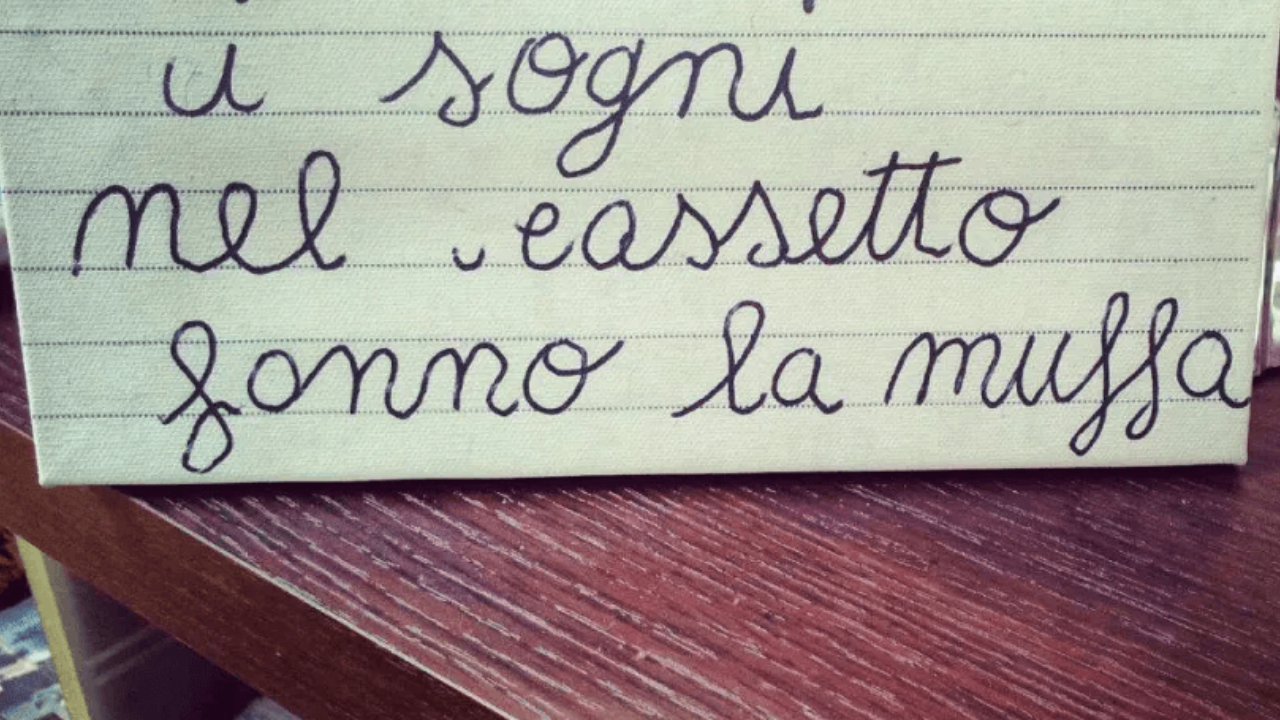 i sogni
nel cassetto
fanno la muffa